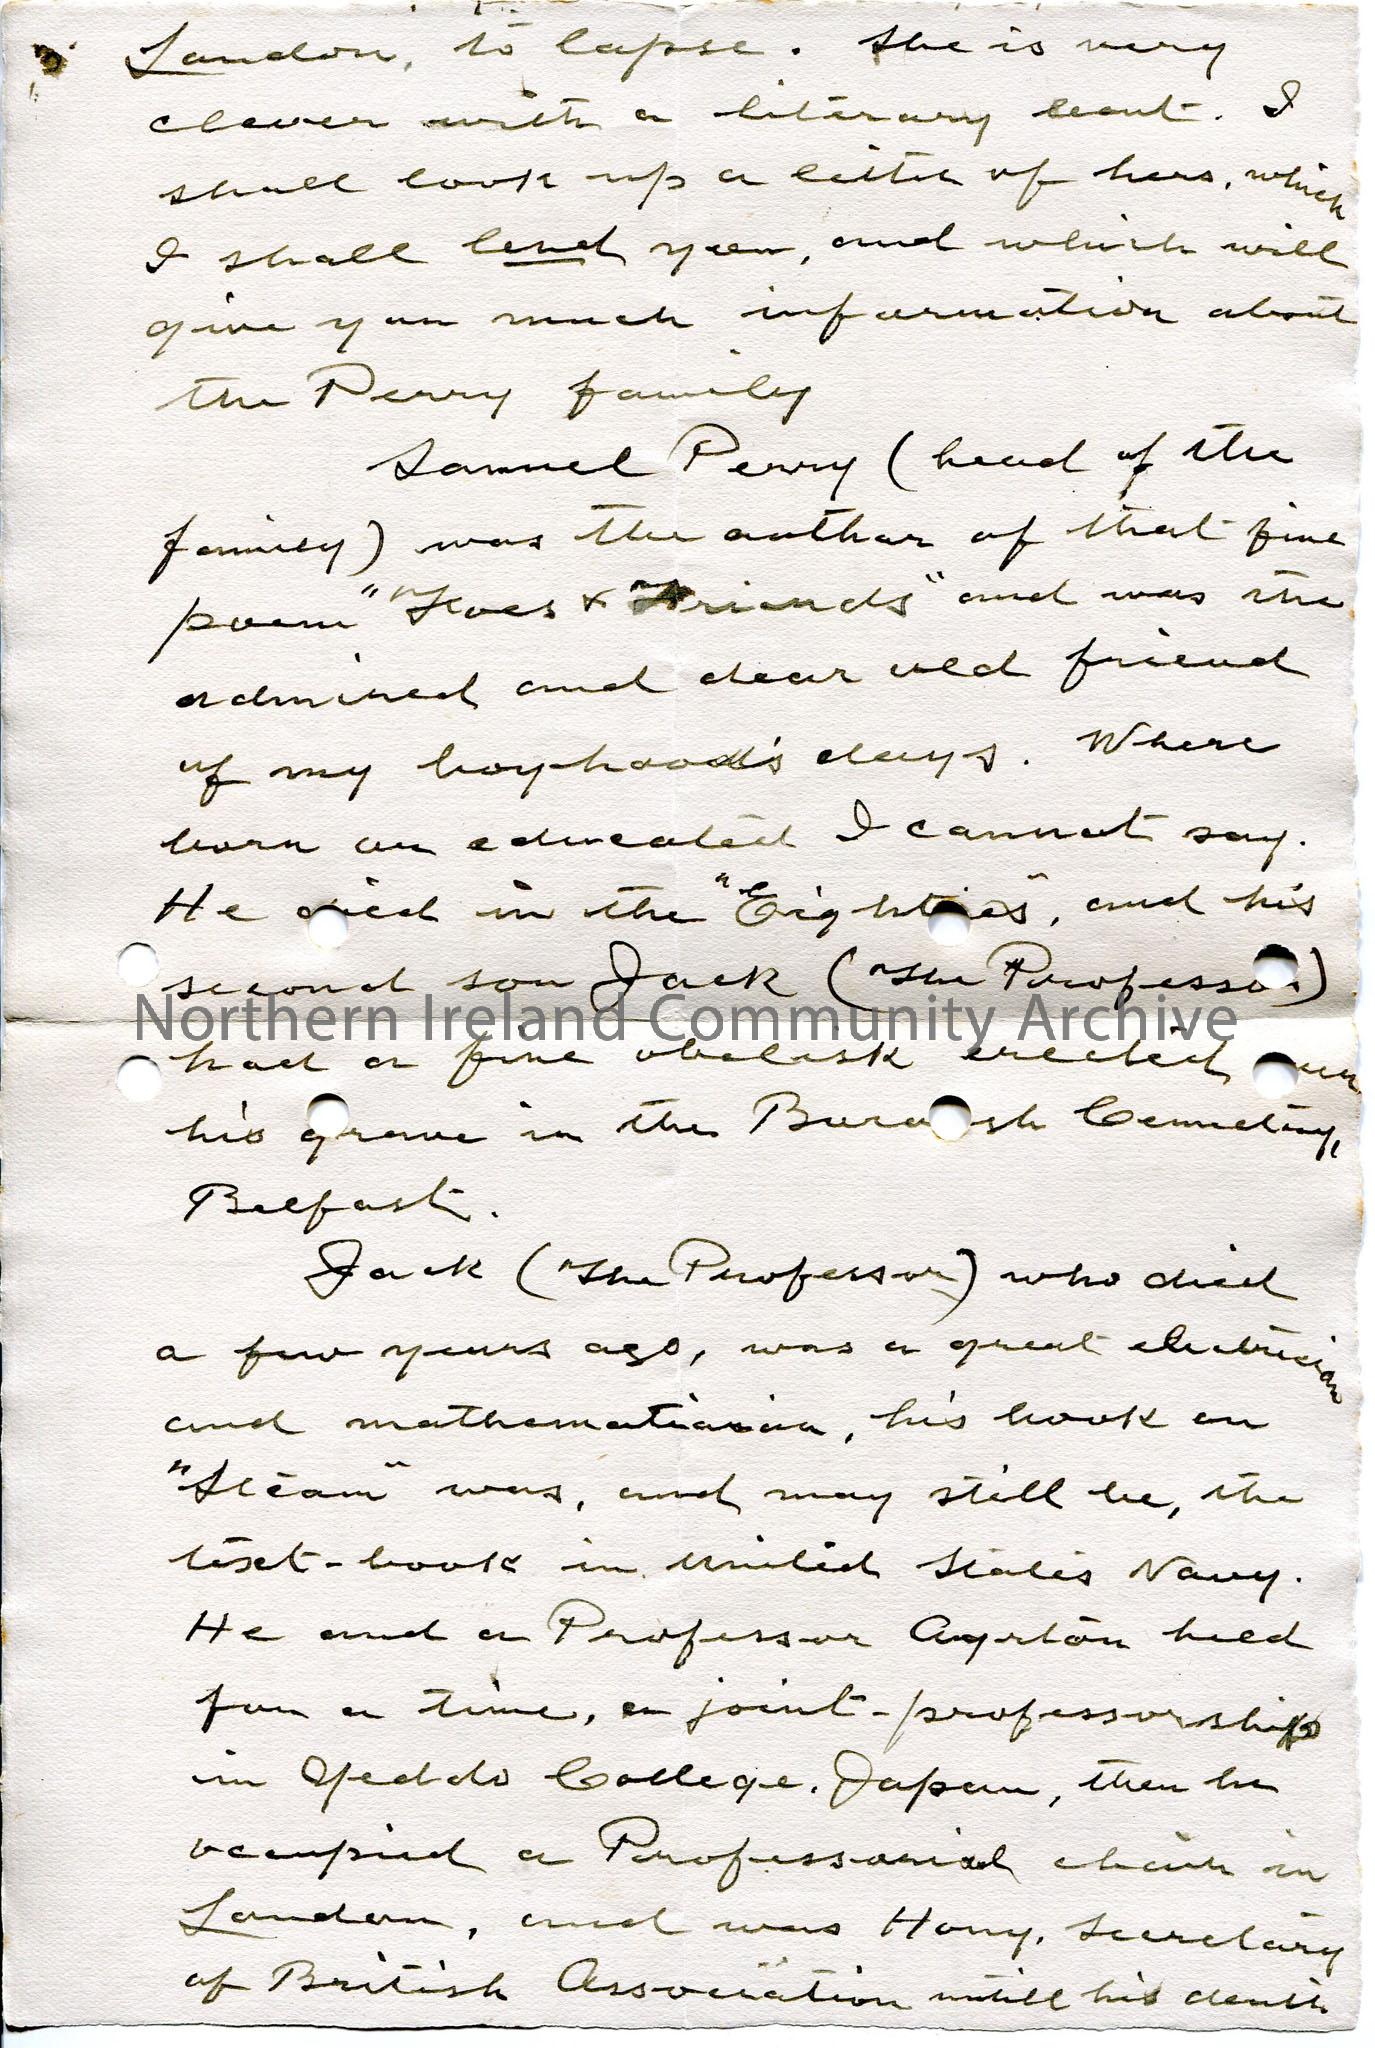 London, to lapse. She is very
clever with a literary beat. I
shall look up a letter of hers, which
I shall lend you, and which will
give you much information about
the Perry family
Samuel Perry (head of the
family) was the author of that fine
poem "Foes & Friends" and was the
admired and dear old friend
of my boyhood's days. Where
born or educated I cannot say.
He died in the "Eighties", and his
second son Jack (The Professor)
Northern Ireland Community Archive
had a fine obelisk erected over
his grave in the Borough Cemetery,
Belfast.
Jack (The Professor) who died
a few years ago, was a great electrician
and mathematician, his book on
"Steam" was, and may still be, the
text-book in United States Navy.
He and a Professor Ayrton held
for a time, a joint-professorship
in Yeddo College, Japan, then he
occupied a Professorial chair in
London, and was Hony. Secretary
of British Association untill his death